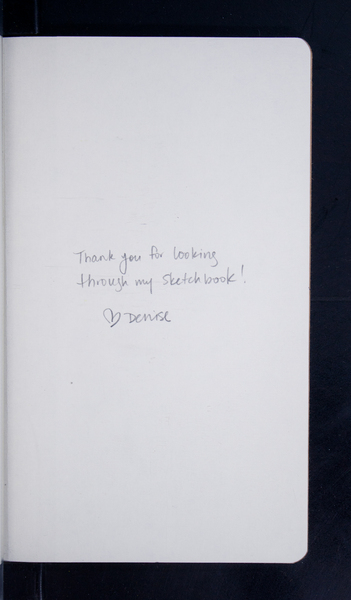 Thank you for looking
through my sketchbook!
♡ Denise